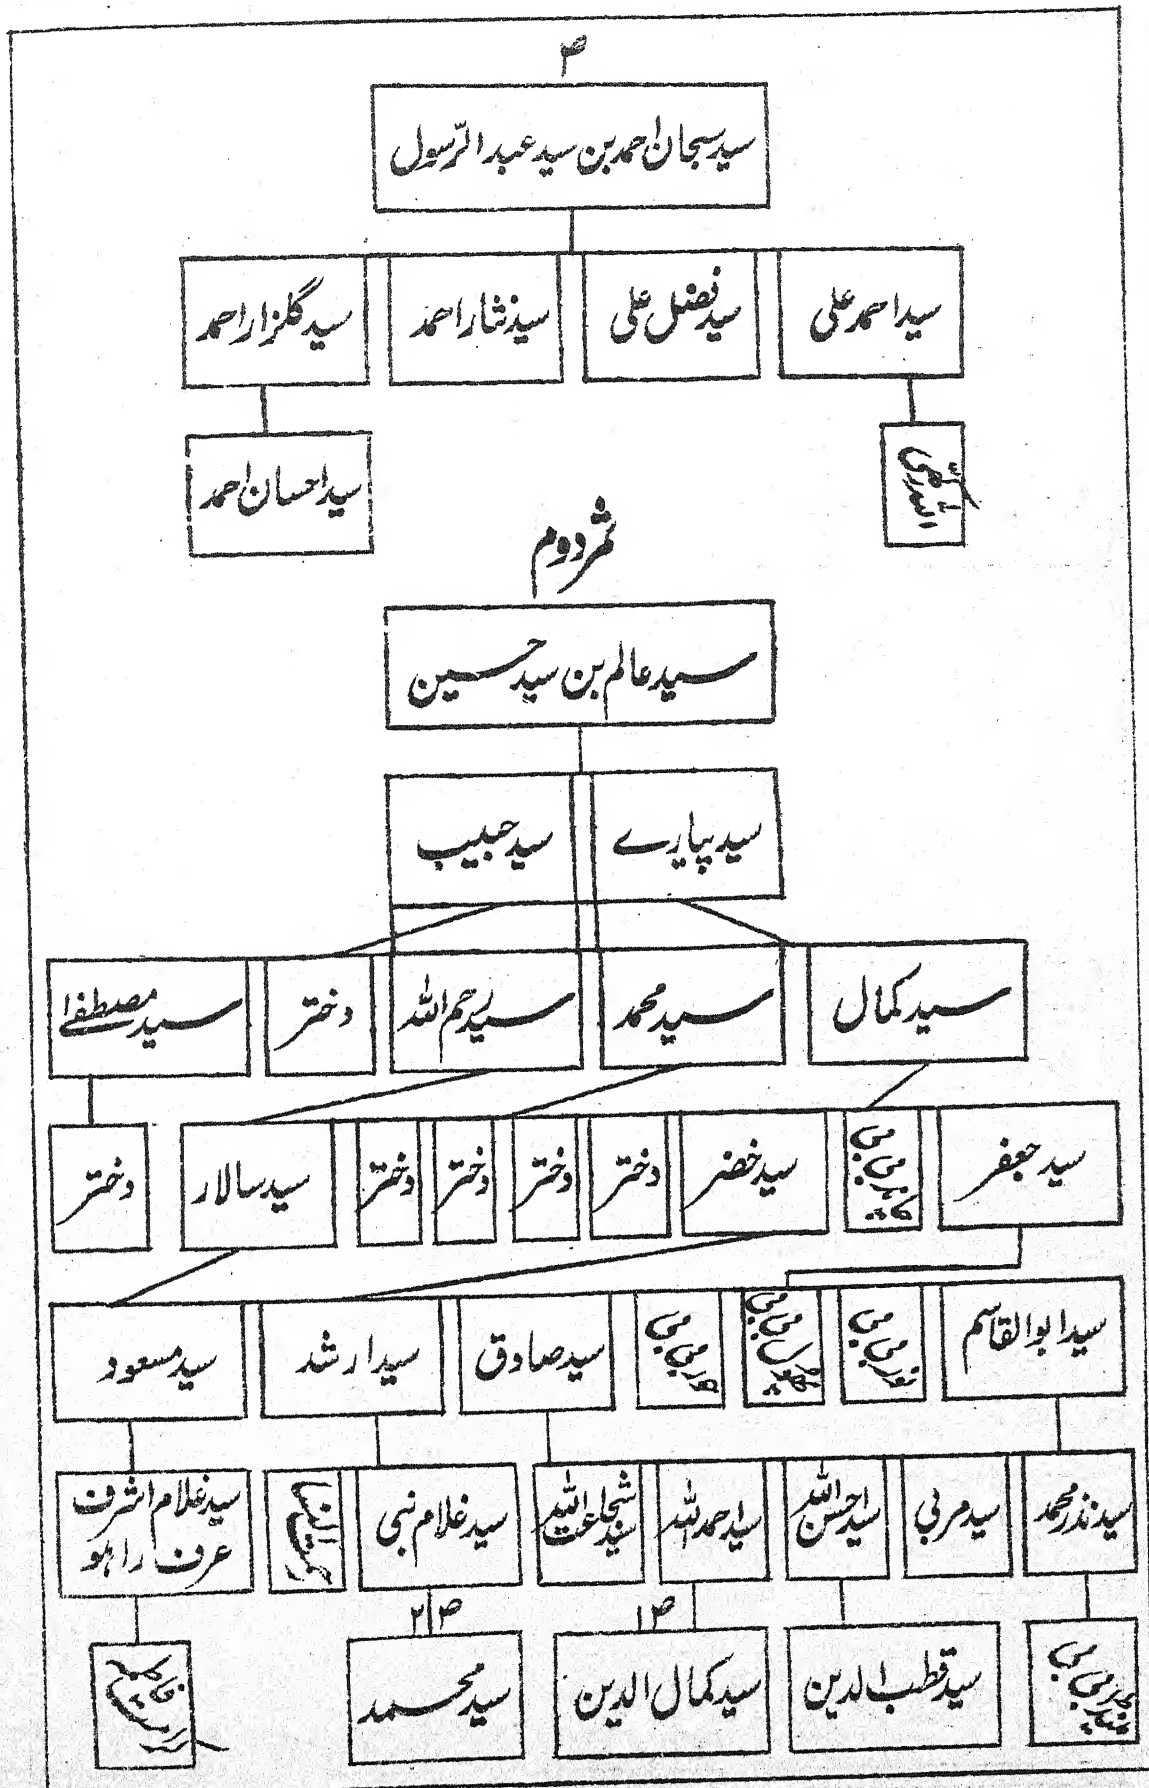 سید سبحان احمد بن سید عبد الرّسول
سید احمد علی
سید فضل علی
سید نثار احمد
سید گلزار احمد
سید احسان احمد
ثمر دوم
سید عالم بن سید حسین
سید پیارے
سید حبیب
سید کمال
سید محمد
سید رحم اللہ
دختر
سید مصطفےٰ
سید جعفر
بی بی
سید خضر
دختر
دختر
دختر
دختر
سید سالار
دختر
سید ابو القاسم
نور بی بی
بی بی
حور بی بی
سید صادق
سید ارشد
سید مسعود
سید نذر محمد
سید مربی
سید احسن اللہ
سید احمد اللہ
سید شجاعت اللہ
سید غلام نبی
سید غلام اشرف
عرف راہو
بی بی
سید قطب الدین
ص۱
سید کمال الدین
ص۲
سید محمد